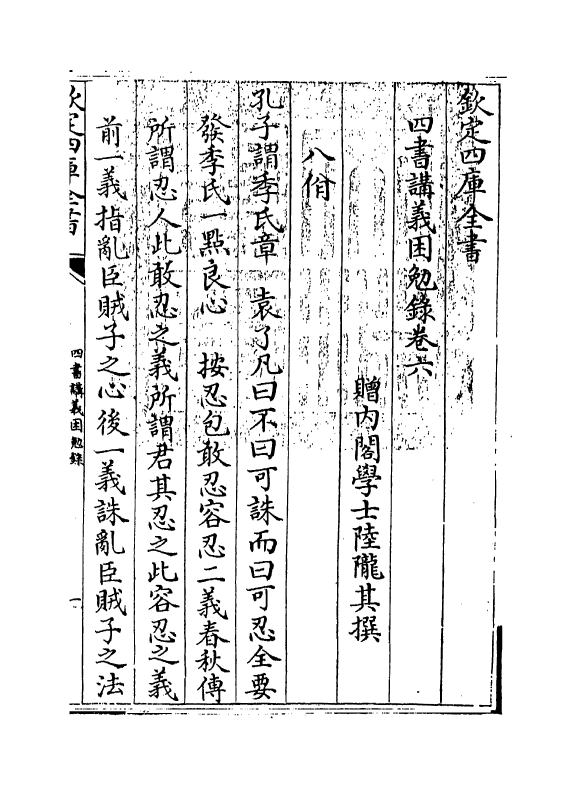 欽定四庫全書
四書講義困勉錄卷六
贈內閣學士陸隴其撰
八佾
孔子謂季氏章 袁了凡曰不曰可誅而曰可忍全要
發季氏一點良心 按忍包敢忍容忍二義春秋傳
所謂忍人此敢忍之義所謂君其忍之此容忍之義
前一義指亂臣賊子之心後一義誅亂臣賊子之法
欽定四庫全書
四書講義困勉錄
一